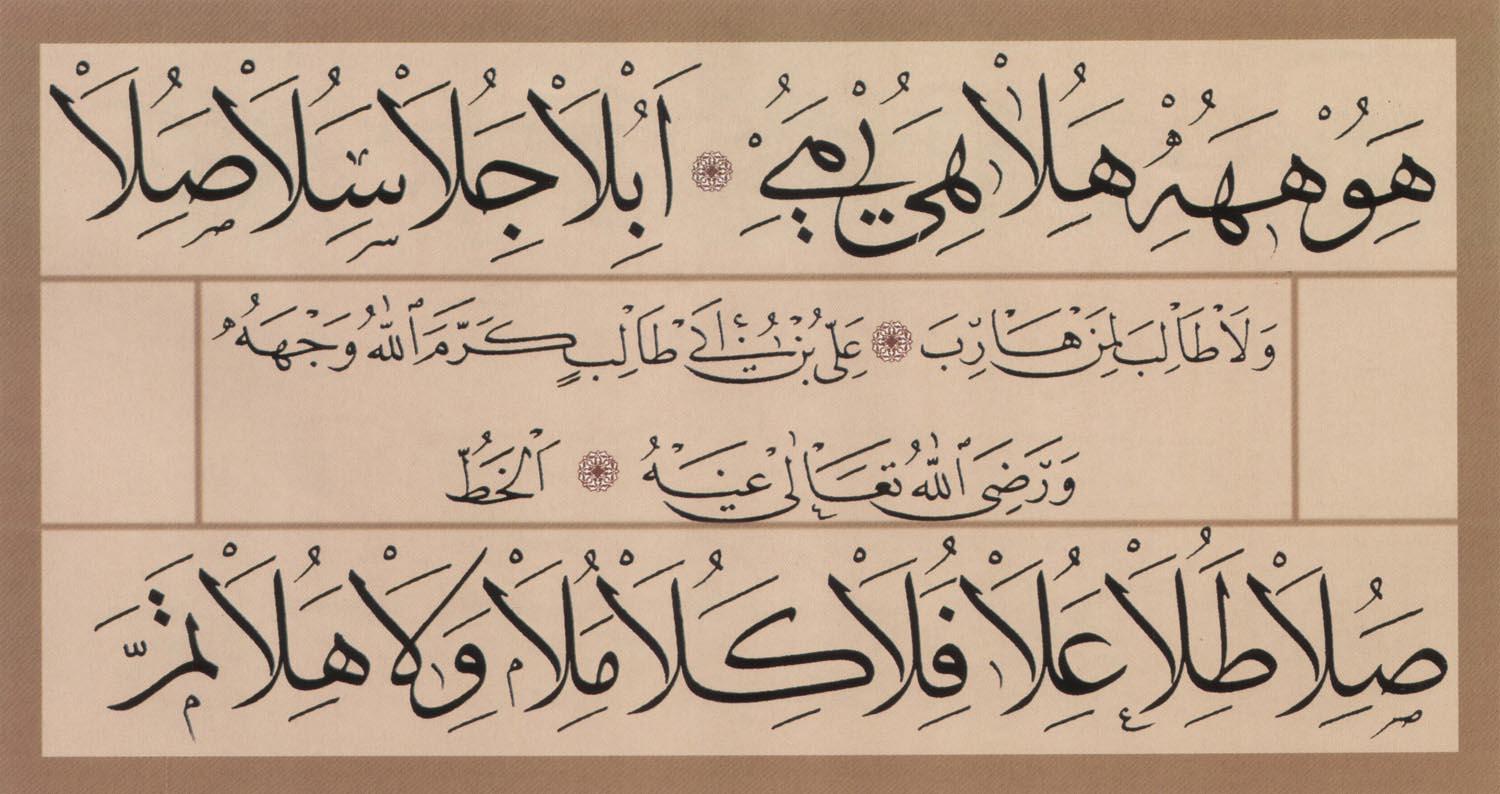 هو هه هلا لهى يمى ابلا جلا سلا صلا
وَلَا طَالِبَ لِمَنْ هَارِبَ عَلِىُّ بْنُ أَبِى طَالِبٍ كَرَّمَ اللّٰهُ وَجْهَهُ
وَرَضِىَ اللّٰهُ تَعَالٰى عَنْهُ اَلْخَطُّ
صلا طلا علا فلا كلا ملا ولا هلا تمّ